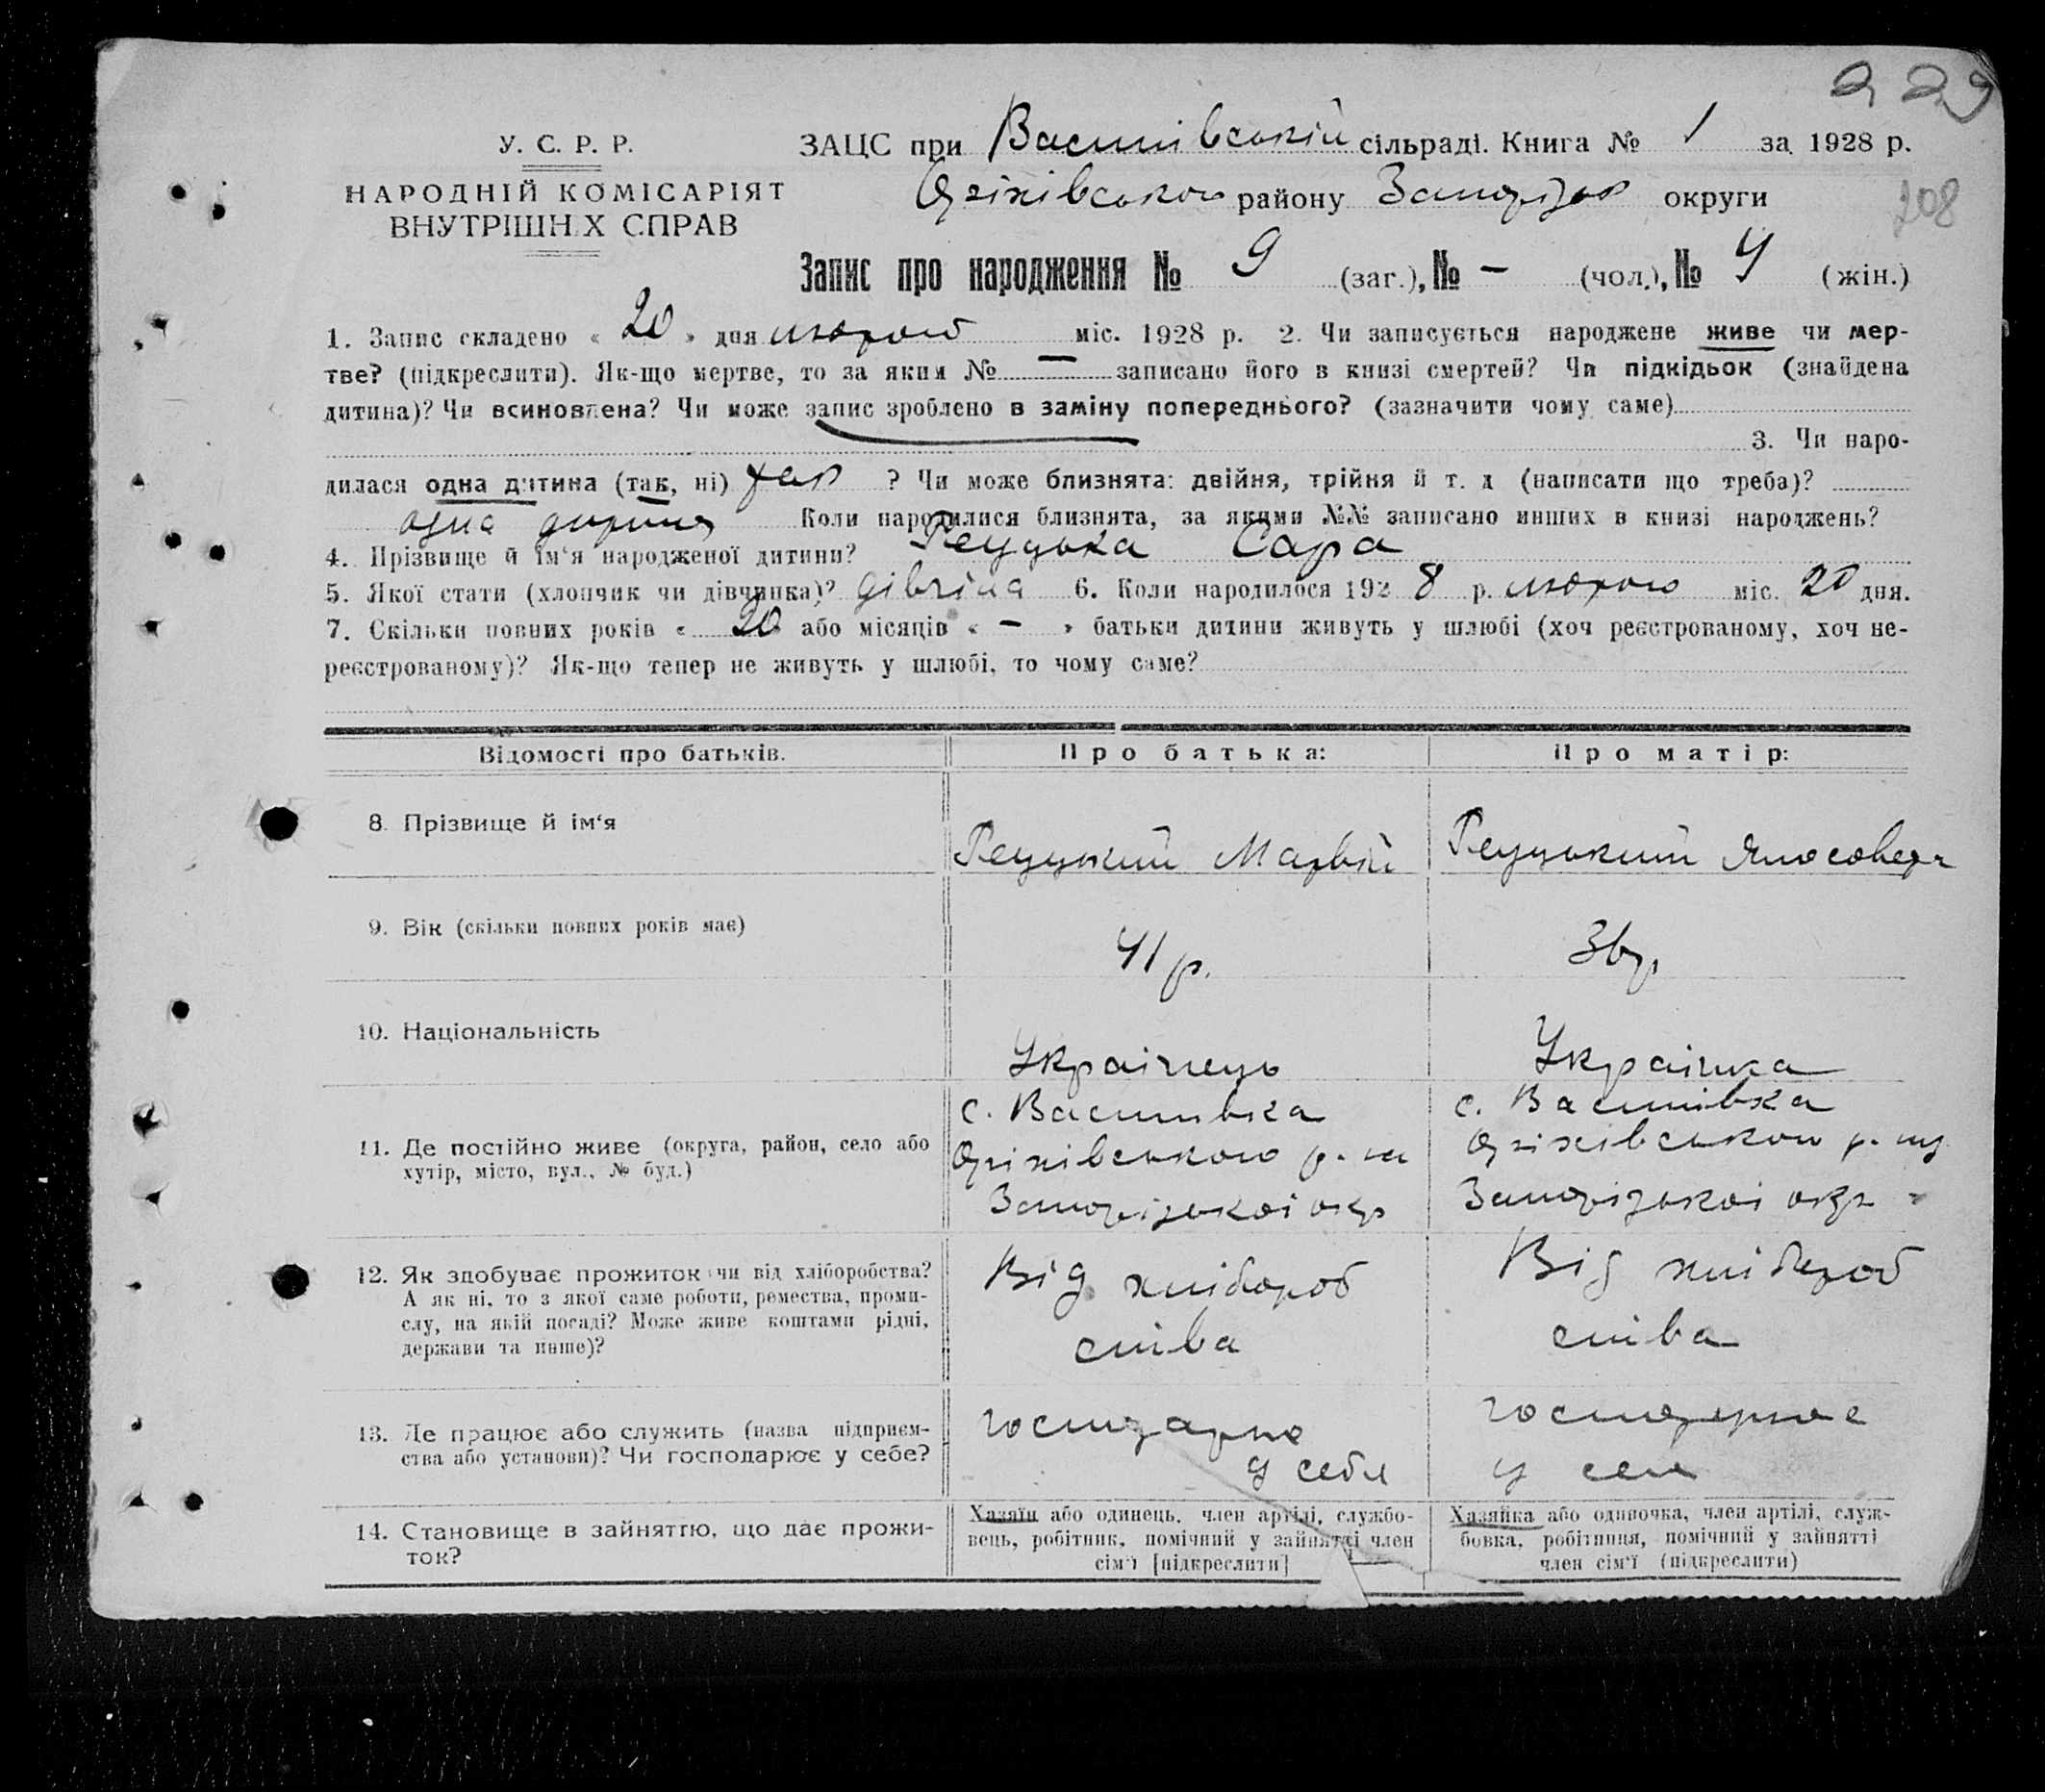 229
У. С. Р. Р.
НАРОДНІЙ КОМІСАРІЯТ
ВНУТРІШН Х СПРАВ
208
ЗАЦС при Василівській сільраді. Книга № 1 за 1928 р.
Оріхівського району Запоріз округи
Запис про народження № 9 (заг.), № – (чол.), № 4 (жін.)
1. Запис складено « 20 » дня лютого міс. 1928 р. 2. Чи записується народжене живе чи мер-
тве? (підкреслити). Як-що мертве, то за яким № — записано його в книзі смертей? Чи підкідьок (знайдена
дитина)? Чи всиновлена? Чи може запис зроблено в заміну попереднього? (зазначити чому саме)
3. Чи наро-
дилася одна дитина (так, ні) так ? Чи може близнята: двійня, трійня й т. д (написати що треба)?
одна дитина Коли народилися близнята, за якими №№ записано инших в книзі народжень?
4. Прізвище й ім‘я народженої дитини? Рецузька Сара
5. Якої стати (хлопчик чи дівчинка)? дівчина 6. Коли народилося 192 8 р. лютого міс. 20 дня.
7. Скільки повних років « 20 або місяців « – » батьки дитини живуть у шлюбі (хоч реєстрованому, хоч не-
реєстрованому)? Як-що тепер не живуть у шлюбі, то чому саме?
Відомості про батьків.
Про батька:
Про матір:
8. Прізвище й ім‘я
Матвій
9. Вік (скільки повних років має)
41 р.
36 р
10. Національність
Українець
Українка
11. Де постійно живе (округа, район, село або
хутір, місто, вул., № буд.)
с. Василівка
Оріхівського р.
Запорізької окр
с. Василівка
Оріхівського р.
Запорізької окр
12. Як здобуває прожиток чи від хліборобства?
А як ні, то з якої саме роботи, ремества, проми-
слу, на якій посаді? Може живе коштами рідні,
держави та инше)?
Від хлібороб
ства
Від хлібороб
ства
13. Де працює або служить (назва підприєм-
ства або установи)? Чи господарює у себе?
господарює
у себя
господарює
у
14. Становище в зайняттю, що дає прожи-
ток?
Хазяїн або одинець, член артілі, службо-
вець, робітник, помічний у зайнятті член
сім‘ї [підкреслити]
Хазяйка або одиночка, член артілі, служ-
бовка, робітниця, помічний у зайнятті
член сім‘ї (підкреслити)